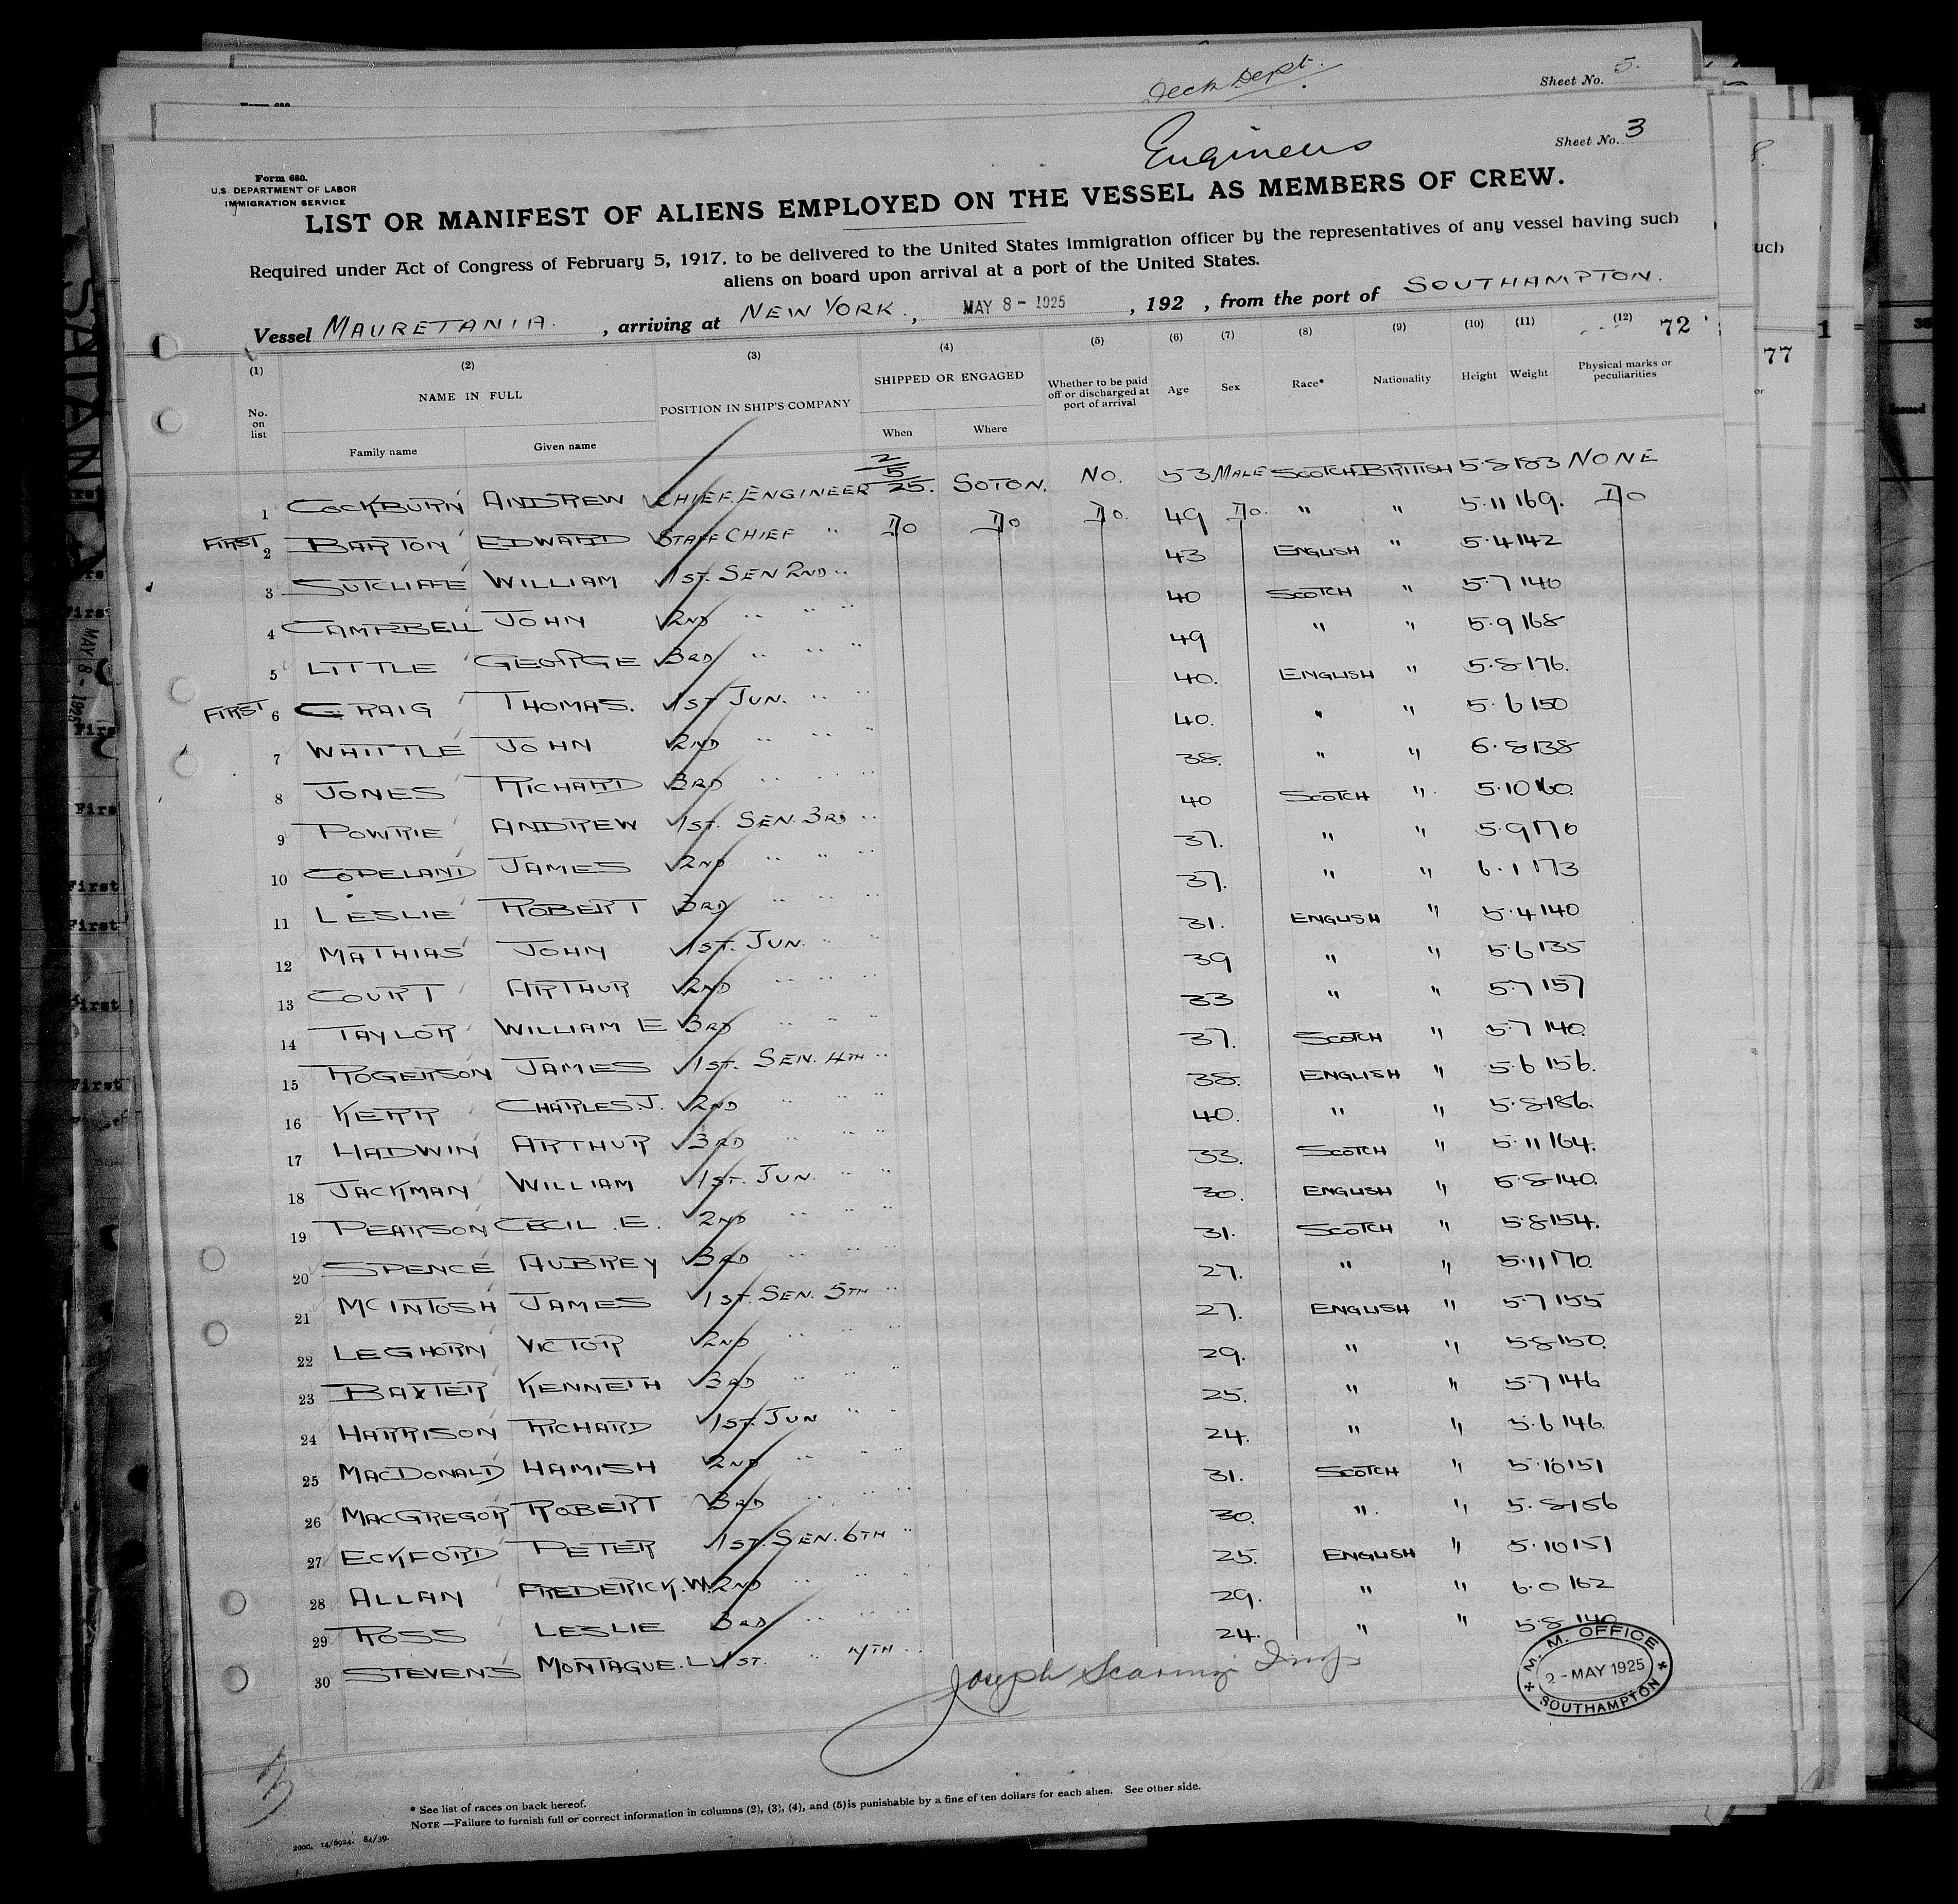 Deck Dept.
Sheet No. 5.
Engineers
Sheet No. 3
Form 680.
U.S. DEPARTMENT OF LABOR
IMMIGRATION SERVICE
LIST OR MANIFEST OF ALIENS EMPLOYED ON THE VESSEL AS MEMBERS OF CREW.
Required under Act of Congress of February 5, 1917, to be delivered to the United States immigration officer by the representatives of any vessel having such
aliens on board upon arrival at a port of the United States.
Vessel MAURETANIA. , arriving at NEW YORK., MAY 8 - 1925 , 192 , from the port of SOUTHAMPTON.
72
77
1
(1) (2) (3) (4) (5) (6) (7) (8) (9) (10) (11) (12)
No. on list NAME IN FULL POSITION IN SHIP'S COMPANY SHIPPED OR ENGAGED Whether to be paid off or discharged at port of arrival Age Sex Race* Nationality Height Weight Physical marks or peculiarities
Family name Given name When Where
1 COCKBURN ANDREW CHIEF. ENGINEER 2/5/25. SOTON. NO. 53 MALE SCOTCH BRITISH 5·8 183 NONE
FIRST 2 BARTON EDWARD STAFF CHIEF " DO DO DO. 49 DO. " " 5·11 169. DO
3 SUTCLIFFE WILLIAM 1ST. SEN 2ND " 43 ENGLISH " 5·4 142
4 CAMPBELL JOHN 2ND " " " 40 SCOTCH " 5·7 140
5 LITTLE GEORGE 3RD " " " 49 " " 5·9 168
FIRST 6 CRAIG THOMAS. 1ST JUN. " " 40. ENGLISH " 5·8 176.
7 WHITTLE JOHN 2ND " " " 40. " " 5·6 150
8 JONES RICHARD 3RD " " " 38. " " 6·8 138
9 POWRIE ANDREW 1ST. SEN. 3RD " 40 SCOTCH " 5·10 160.
10 COPELAND JAMES 2ND " " " 37. " " 5·9 176
11 LESLIE ROBERT 3RD " " " 37. " " 6·1 173
12 MATHIAS JOHN 1ST. JUN. " " 31. ENGLISH " 5·4 140
13 COURT ARTHUR 2ND " " " 39 " " 5·6 135
14 TAYLOR WILLIAM E 3RD " " " 33 " " 5·7 157
15 ROGERSON JAMES 1ST. SEN. 4TH " 37. SCOTCH " 5·7 140.
16 KERR CHARLES.J. 2ND " " " 38. ENGLISH " 5·6 156.
17 HADWIN ARTHUR 3RD " " " 40. " " 5·8 186.
18 JACKMAN WILLIAM 1ST. JUN. " " 33. SCOTCH " 5·11 164.
19 PEARSON CECIL .E. 2ND " " " 30. ENGLISH " 5·8 140.
20 SPENCE AUBREY 3RD " " " 31. SCOTCH " 5·8 154.
21 MCINTOSH JAMES 1ST. SEN. 5TH " 27. " " 5·11 170.
22 LEGHORN VICTOR 2ND " " " 27. ENGLISH " 5·7 155
23 BAXTER KENNETH 3RD " " " 29. " " 5·8 150.
24 HARRISON RICHARD 1ST. JUN " " 25. " " 5·7 146
25 MACDONALD HAMISH 2ND " " " 24. " " 5·6 146.
26 MACGREGOR ROBERT 3RD " " " 31. SCOTCH " 5·10 151
27 ECKFORD PETER 1ST. SEN. 6TH " 30. " " 5·8 156
28 ALLAN FREDERICK.W. 2ND " " " 25. ENGLISH " 5·10 151
29 ROSS LESLIE 3RD " " " 29. " " 6·0 162
30 STEVENS MONTAGUE.L 1ST. " 7TH " 24. " " 5·8 140
Joseph
M. M. OFFICE
2 - MAY 1925
SOUTHAMPTON
* See list of races on back hereof.
NOTE —Failure to furnish full or correct information in columns (2), (3), (4), and (5) is punishable by a fine of ten dollars for each alien. See other side.
2000. 14/6924. 84/39.